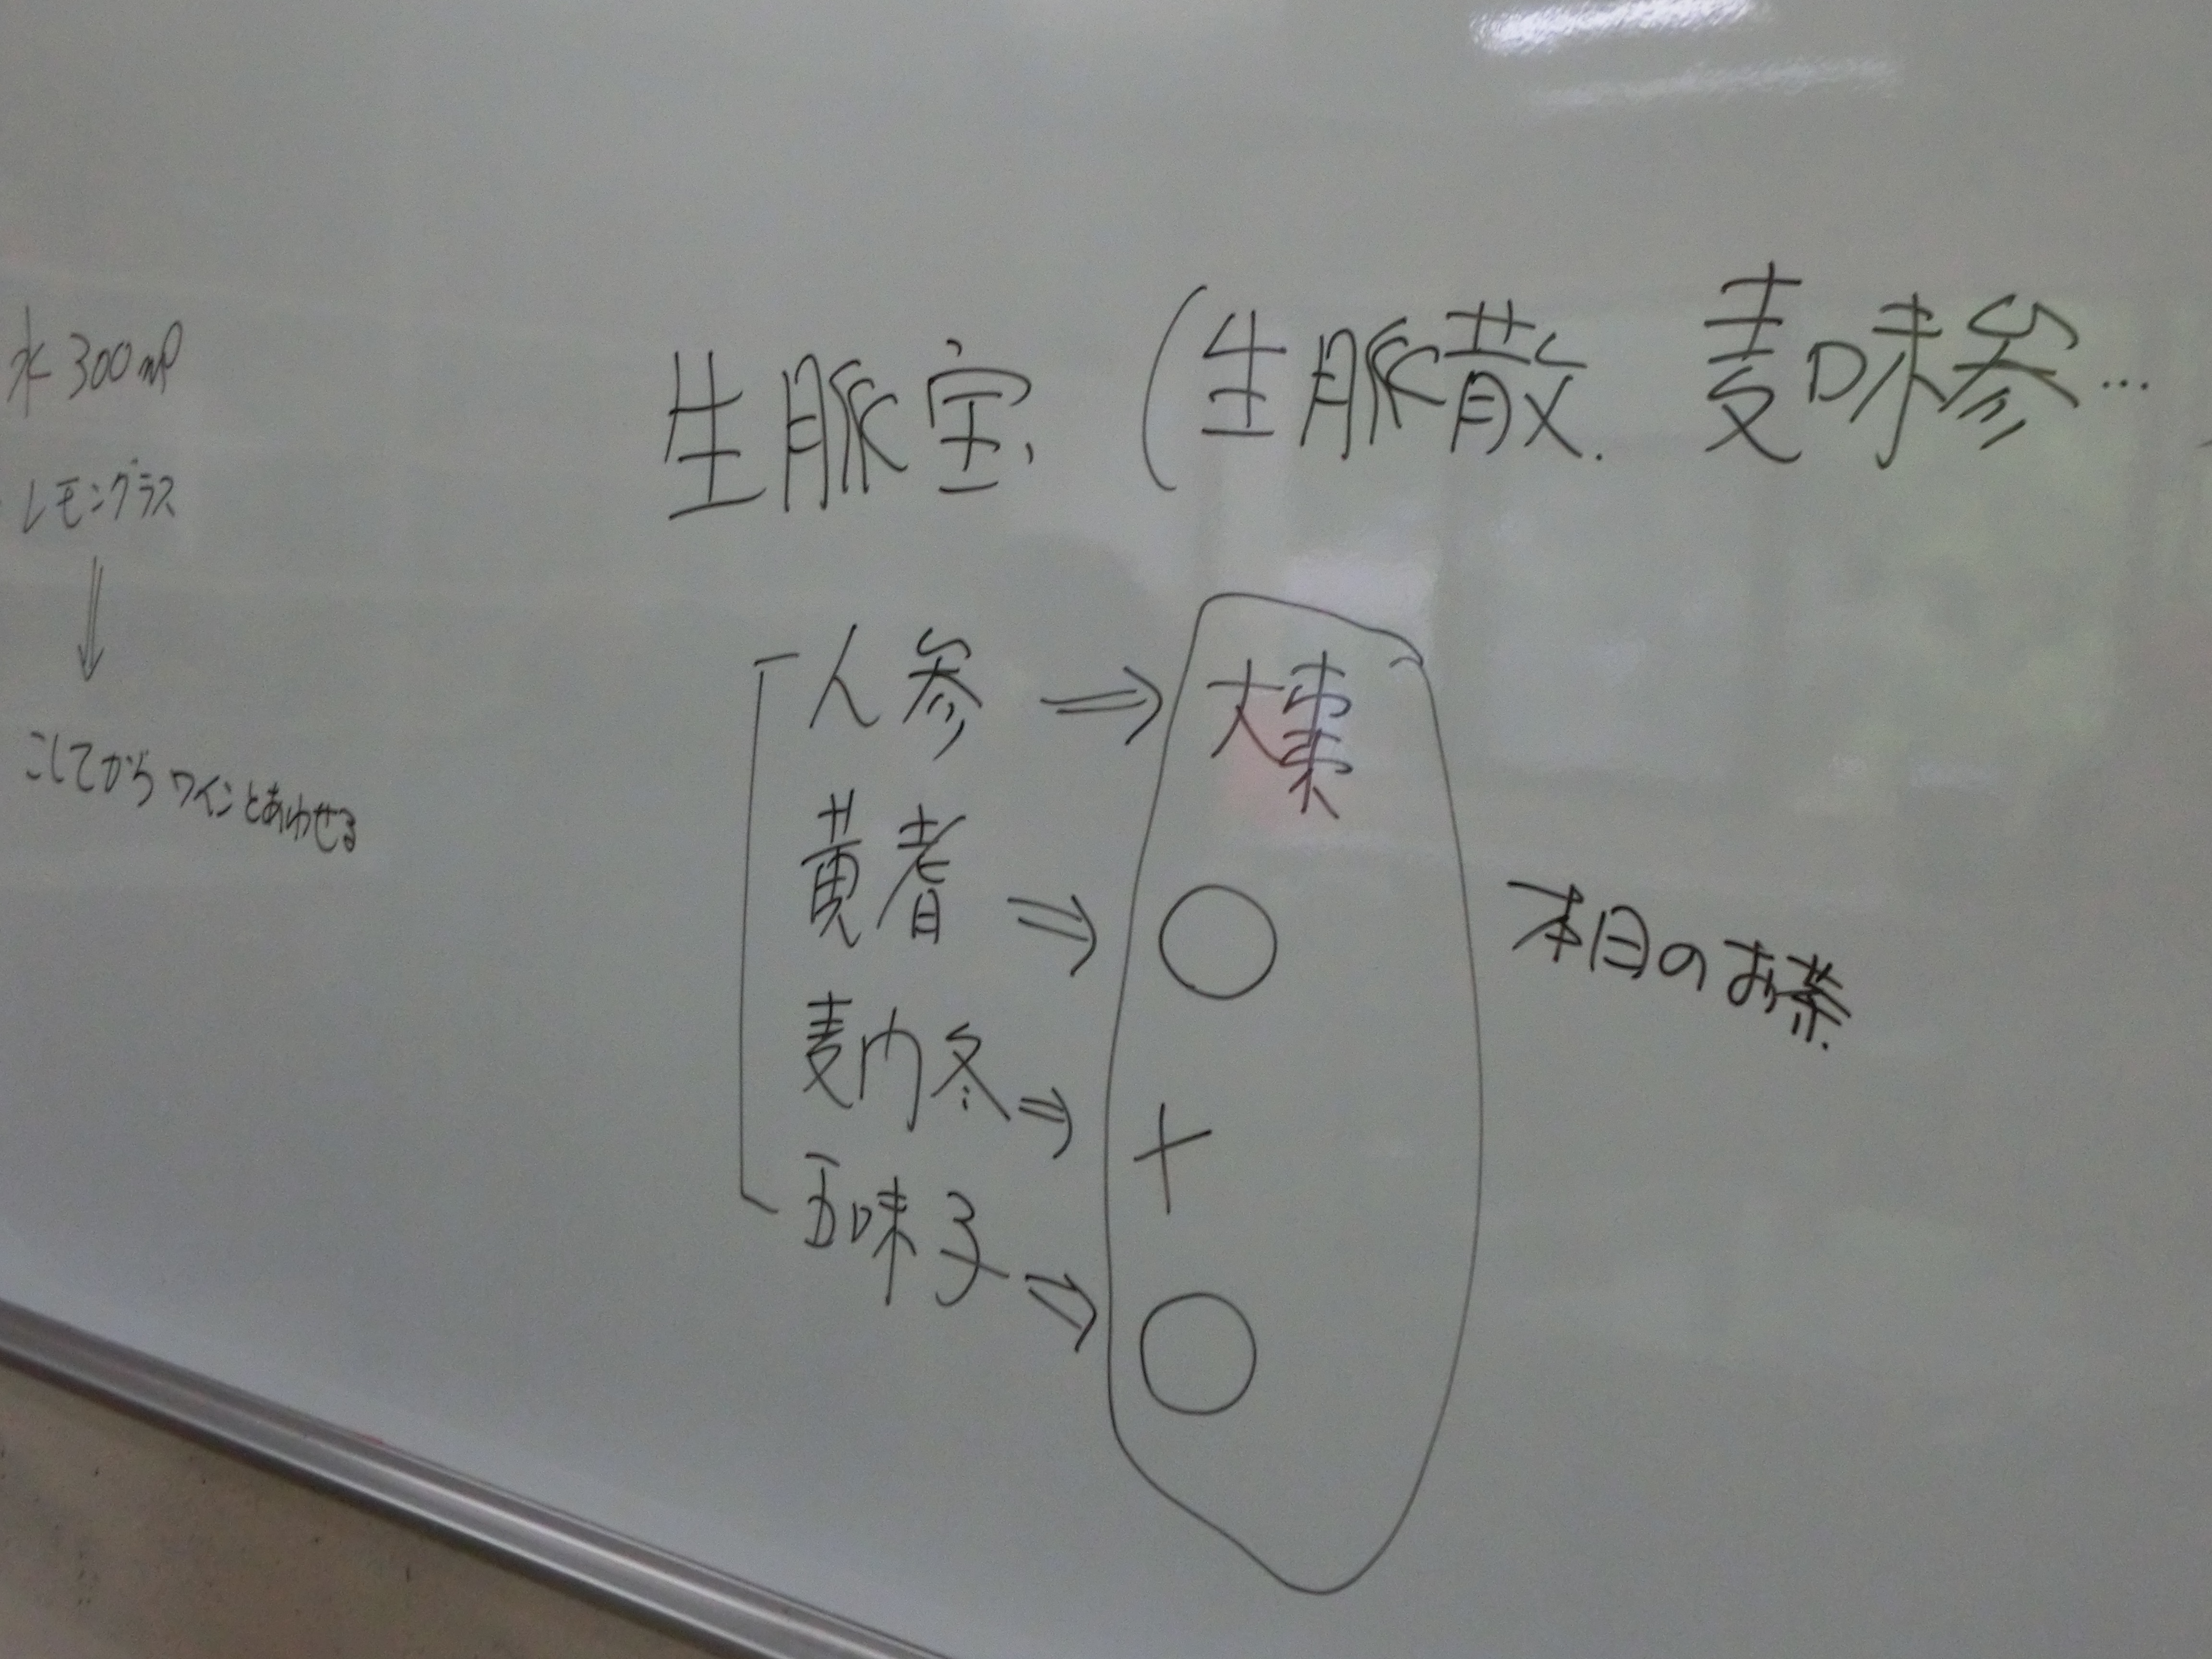 水 300ml
レモングラス
↓
こしてから ワインとあわせる
生脈宝 (生脈散. 麦味参…
人参 ⇒ 大棗
黄耆 ⇒ ○
麦門冬 ⇒ +
五味子 ⇒ ○
本日のお茶.